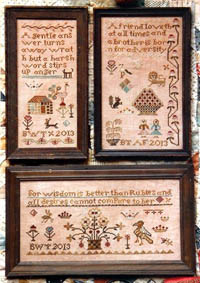 A gentle ans
wer turns
away wrat
h but a harsh
word stirs
up anger
BWTX 2013
A friend loveth
at all times and
a brother is bor
n for adversity
BY AF 2013
For wisdom is better than Rubies and
all desires cannot compare to her
BWT 2013